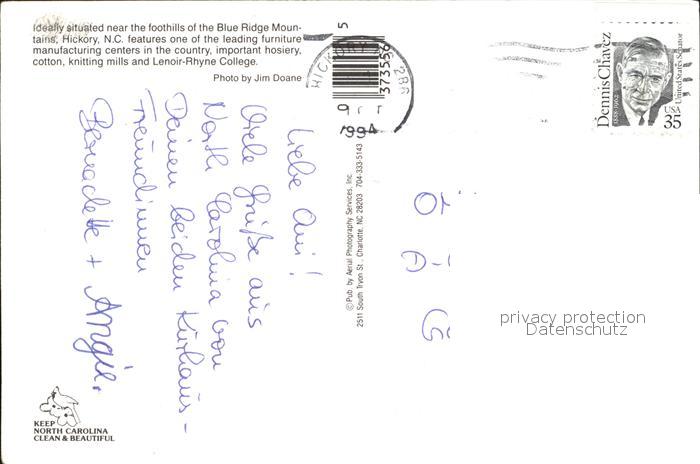 Ideally situated near the foothills of the Blue Ridge Moun-
tains, Hickory, N.C. features one of the leading furniture
manufacturing centers in the country, important hosiery,
cotton, knitting mills and Lenoir-Rhyne College.
Photo by Jim Doane
5
373556
HICKORY
286
1994
Dennis Chavez
United States Senator
USA
35
Liebe Ani!
Viele Grüße aus
North Carolina von
Deinen beiden Kurhaus-
Freundinnen
Bernadette + Angie.
© Pub. by Aerial Photography Services, Inc.
2511 South Tryon St., Charlotte, NC 28203 704-333-5143
privacy protection
Datenschutz
KEEP
NORTH CAROLINA
CLEAN & BEAUTIFUL